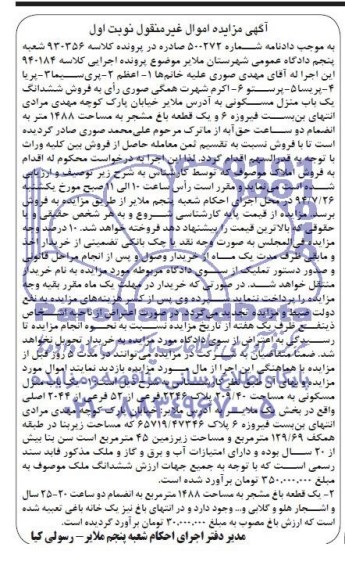 آگهی مزایده اموال غیرمنقول نوبت اول
به موجب دادنامه شماره ۵۰۰۲۷۲ صادره در پرونده کلاسه ۹۳۰۳۵۶ شعبه
پنجم دادگاه عمومی شهرستان ملایر موضوع پرونده اجرایی کلاسه ۹۴۰۱۸۴
این اجرا له آقای مهدی صوری علیه خانم‌ها ۱- اعظم ۲- پری‌سیما ۳- پریا
۴- پریسا ۵- پرستو ۶- اکرم شهرت همگی صوری رأی به فروش ششدانگ
یک باب منزل مسکونی به آدرس ملایر خیابان پارک کوچه مهدی مرادی
انتهای بن‌بست فیروزه ۶ و یک قطعه باغ مشجر به مساحت ۱۴۸۸ متر به
انضمام دو ساعت حق‌آبه از ماترک مرحوم علی‌محمد صوری صادر گردیده
است تا با فروش نسبت به تقسیم ثمن معامله حاصل از فروش بین کلیه وراث
با توجه به قدرالسهم اقدام گردد. لذا این اجرا به درخواست محکوم له اقدام
به فروش املاک موصوف که توسط کارشناسی به شرح زیر توصیف و ارزیابی
شده است می‌نماید و مقرر است رأس ساعت ۱۰ الی ۱۱ صبح مورخ یکشنبه
۹۴/۷/۲۶ در محل اجرای احکام شعبه پنجم ملایر از طریق مزایده به فروش
برسد. مزایده از قیمت پایه کارشناسی شروع و به هر شخص حقیقی و یا
حقوقی که بالاترین قیمت را پیشنهاد دهد فروخته خواهد شد. ۱۰ درصد وجه
مزایده فی‌المجلس به صورت وجه نقد یا چک بانکی تضمینی از خریدار اخذ
و مابقی ظرف مدت یک ماه از خریدار وصول و پس از انجام مراحل قانونی
و صدور دستور تملیک از سوی دادگاه مربوطه مورد مزایده به نام خریدار
منتقل خواهد شد. در صورتی که خریدار در مهلت یک ماه مقرر بقیه وجه
مزایده را پرداخت ننماید سپرده وی پس از کسر هزینه‌های مزایده به نفع
دولت ضبط و مزایده تجدید می‌گردد در صورت اعتراض از ناحیه اشخاص
ذینفع ظرف یک هفته از تاریخ مزایده نسبت به نحوه انجام مزایده تا
رسیدگی به اعتراض از سوی دادگاه مورد مزایده به خریدار تحویل نخواهد
شد. ضمنا متقاضیان به شرکت در مزایده می‌توانند در مدت ۵ روز قبل از
مزایده با هماهنگی این اجرا از مال مورد مزایده بازدید نمایند اموال مورد
مسکونی به مساحت ۲۰۴/۴۰ دارای پلاک ۲۲۴۶ فرعی از ۵۲ فرعی از ۲۰۴۴ اصلی
واقع در بخش ملایر به آدرس ملایر خیابان پارک کوچه مهدی مرادی
انتهای بن‌بست فیروزه ۶ پلاک ۶۵۷۱۹/۴۷۳۴۶ که مساحت زیربنا در طبقه
همکف ۱۳۹/۶۹ مترمربع و مساحت زیرزمین ۴۵ مترمربع است سن بنا بیش
از ۲۰ سال بوده و دارای امتیازات آب و برق و گاز و ملک مذکور فاید سند
رسمی است که با توجه به جمیع جهات ارزش ششدانگ ملک موصوف به
مبلغ ۳۵۰.۰۰۰.۰۰۰ تومان برآورد شده است.
۲- یک قطعه باغ مشجر به مساحت ۱۴۸۸ مترمربع به انضمام دو ساعت ۲۰-۲۵ سال
و اشجار هلو و گلابی و... وجود دارد و در انتهای باغ نیز یک خانه باغی تعبیه شده
است که ارزش باغ مصوب به مبلغ ۳۰.۰۰۰.۰۰۰ تومان برآورد گردیده است.
مدیر دفتر اجرای احکام شعبه پنجم ملایر - رسولی کیا